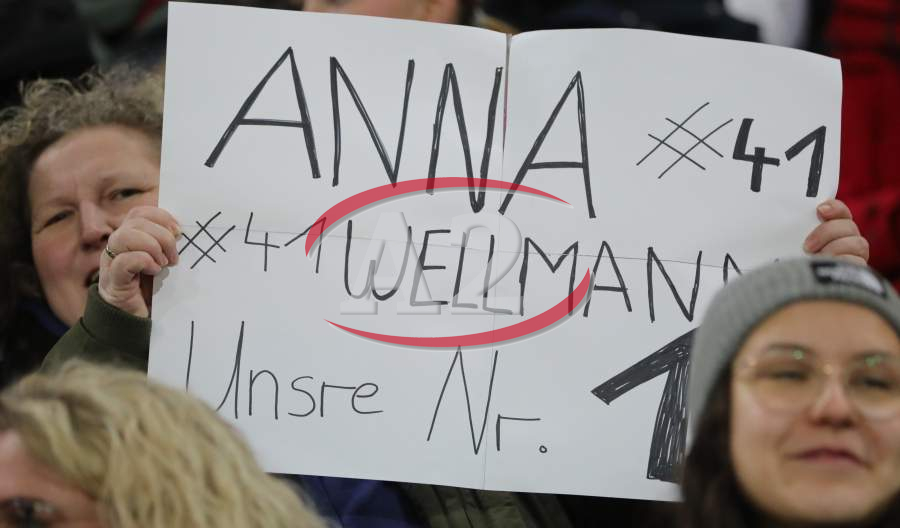 ANNA #41
#41 WELLMANN
Unsre Nr. 1
A2